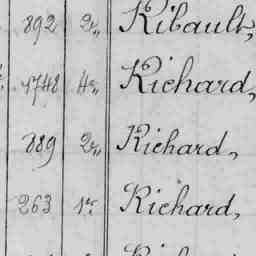 892 2e, Ribault,
1748 4e, Richard,
889 2e, Richard,
263 1er Richard,